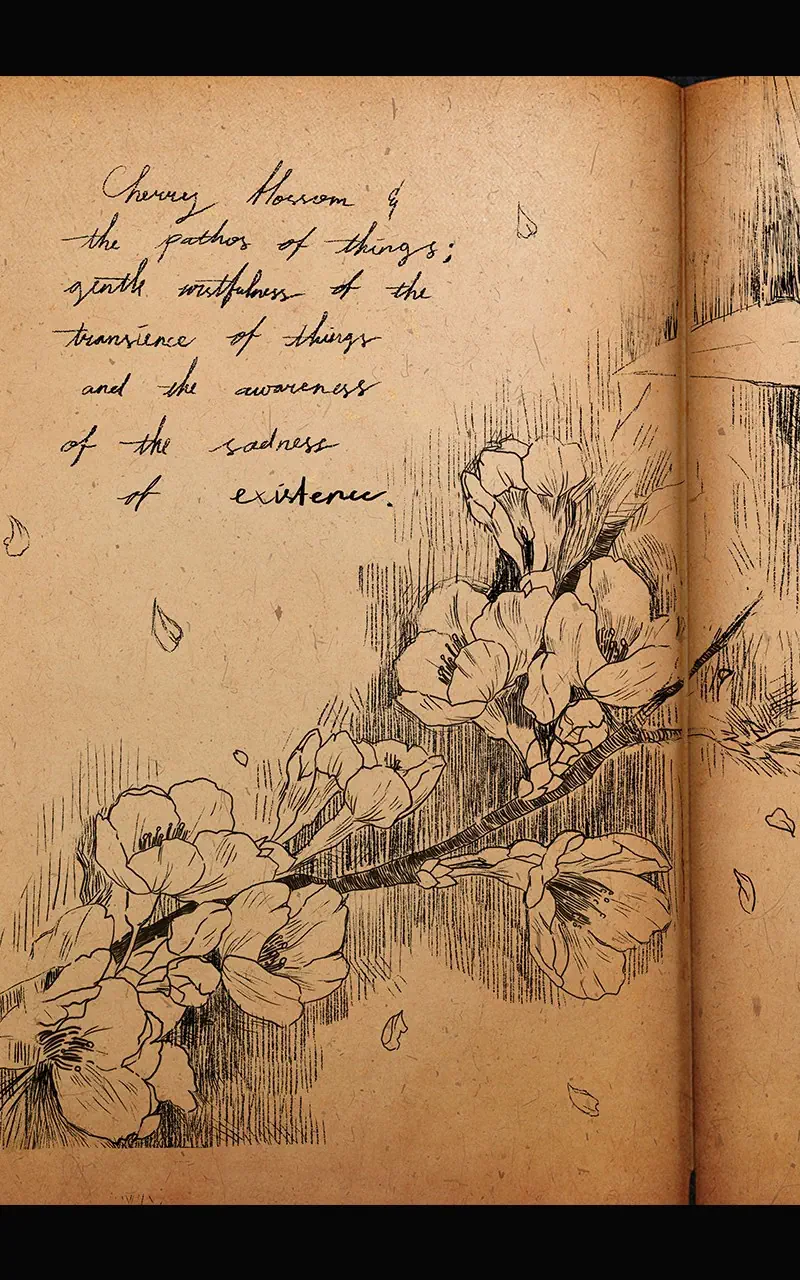 Cherry blossom &
the pathos of things;
gentle wistfulness of the
transience of things
and the awareness
of the sadness
of existence.